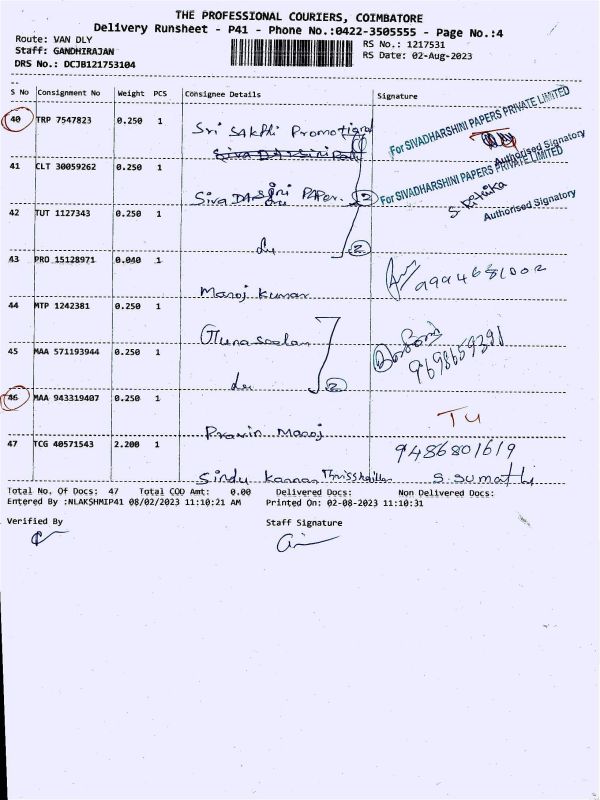 THE PROFESSIONAL COURIERS, COIMBATORE
Delivery Runsheet - P41 - Phone No.:0422-3505555 - Page No.:4
Route: VAN DLY
RS No.: 1217531
Staff: GANDHIRAJAN
RS Date: 02-Aug-2023
DRS No.: DCJB121753104
S No Consignment No Weight PCS Consignee Details Signature
40 TRP 7547823 0.250 1 Sri SAKthi Promotional
For SIVADHARSHINI PAPERS PRIVATE LIMITED
Authorised Signatory
41 CLT 30059262 0.250 1 Siva DARSini PAPer. 2
For SIVADHARSHINI PAPERS PRIVATE LIMITED
Authorised Signatory
42 TUT 1127343 0.250 1 do 2
43 PRO 15128971 0.040 1 Manoj Kumar 9994681002
44 MTP 1242381 0.250 1 Gunaseelan
45 MAA 571193944 0.250 1 do 2
9698659391
46 MAA 943319407 0.250 1 Pravin Manoj
47 TCG 40571543 2.200 1 Sindu Kannan
9486801619
S. Sumathi
Total No. Of Docs: 47 Total COD Amt: 0.00 Delivered Docs: Non Delivered Docs:
Entered By :NLAKSHMIP41 08/02/2023 11:10:21 AM Printed On: 02-08-2023 11:10:31
Verified By Staff Signature